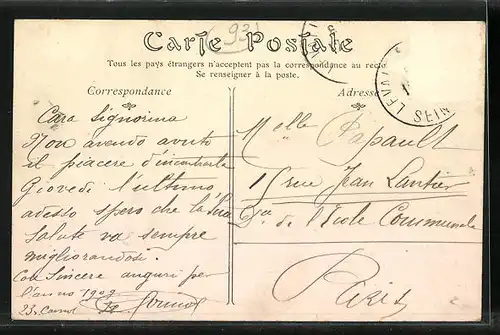 93
Carte Postale
Tous les pays étrangers n'acceptent pas la correspondance au recto
Se renseigner à la poste.
Correspondance
Cara Signorina
Non avendo avuto
il piacere d'incontrarla
Giovedi l'ultimo
adesso spero che la Sua
Salute va sempre
migliorandosi.
Con Sincere auguri per
l'anno 1909
25.
Adresse
Melle Papault
15 rue Jean Lantier
de l'Ecole Communale
Paris
LEVALLOIS
SEINE